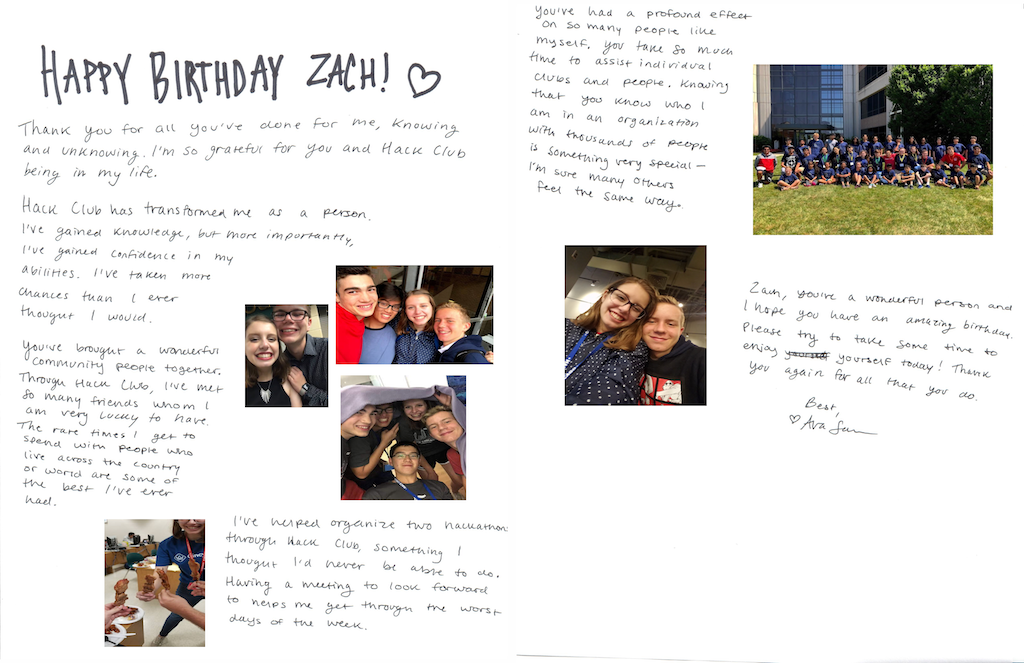 HAPPY BIRTHDAY ZACH! ♡
Thank you for all you've done for me, knowing
and unknowing. I'm so grateful for you and Hack Club
being in my life.
Hack Club has transformed me as a person.
I've gained knowledge, but more importantly,
I've gained confidence in my
abilities. I've taken more
chances than I ever
thought I would.
You've brought a wonderful
community people together.
Through Hack Club, I've met
so many friends whom I
am very lucky to have.
The rare times I get to
spend with people who
live across the country
or world are some of
the best I've ever
had.
I've helped organize two hackathons
through Hack Club, something I
thought I'd never be able to do.
Having a meeting to look forward
to helps me get through the worst
days of the week.
You've had a profound effect
on so many people like
myself. You take so much
time to assist individual
clubs and people. Knowing
that you know who I
am in an organization
with thousands of people
is something very special—
I'm sure many others
feel the same way.
Zach, you're a wonderful person and
I hope you have an amazing birthday.
Please try to take some time to
enjoy yourself today! Thank
you again for all that you do.
Best,
♡ Ava